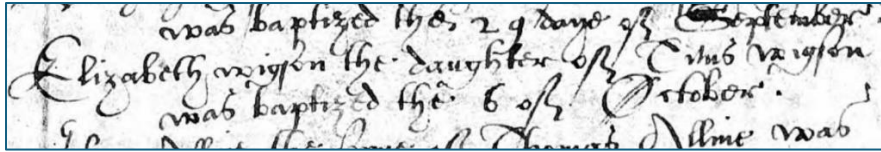 was baptized the 29 daye of September
Elizabeth wigson the daughter of Titus wigson
was baptized the 6 of October .
the Thomas Alline was